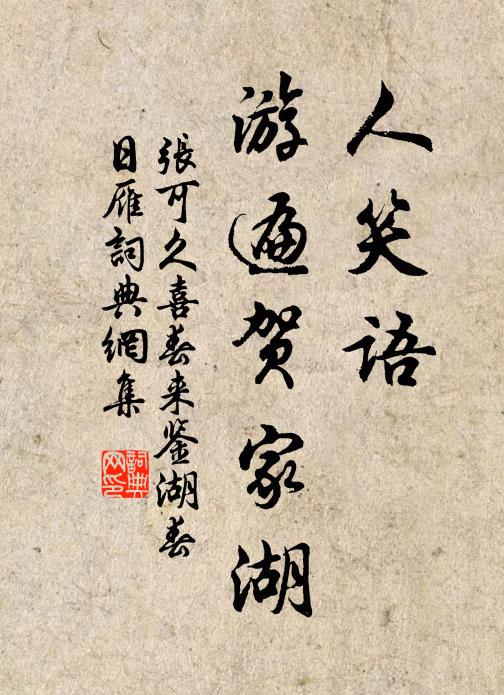 人笑语
游遍贺家湖
張可久喜春来鉴湖春
日雁詞典網集
詞典
网印